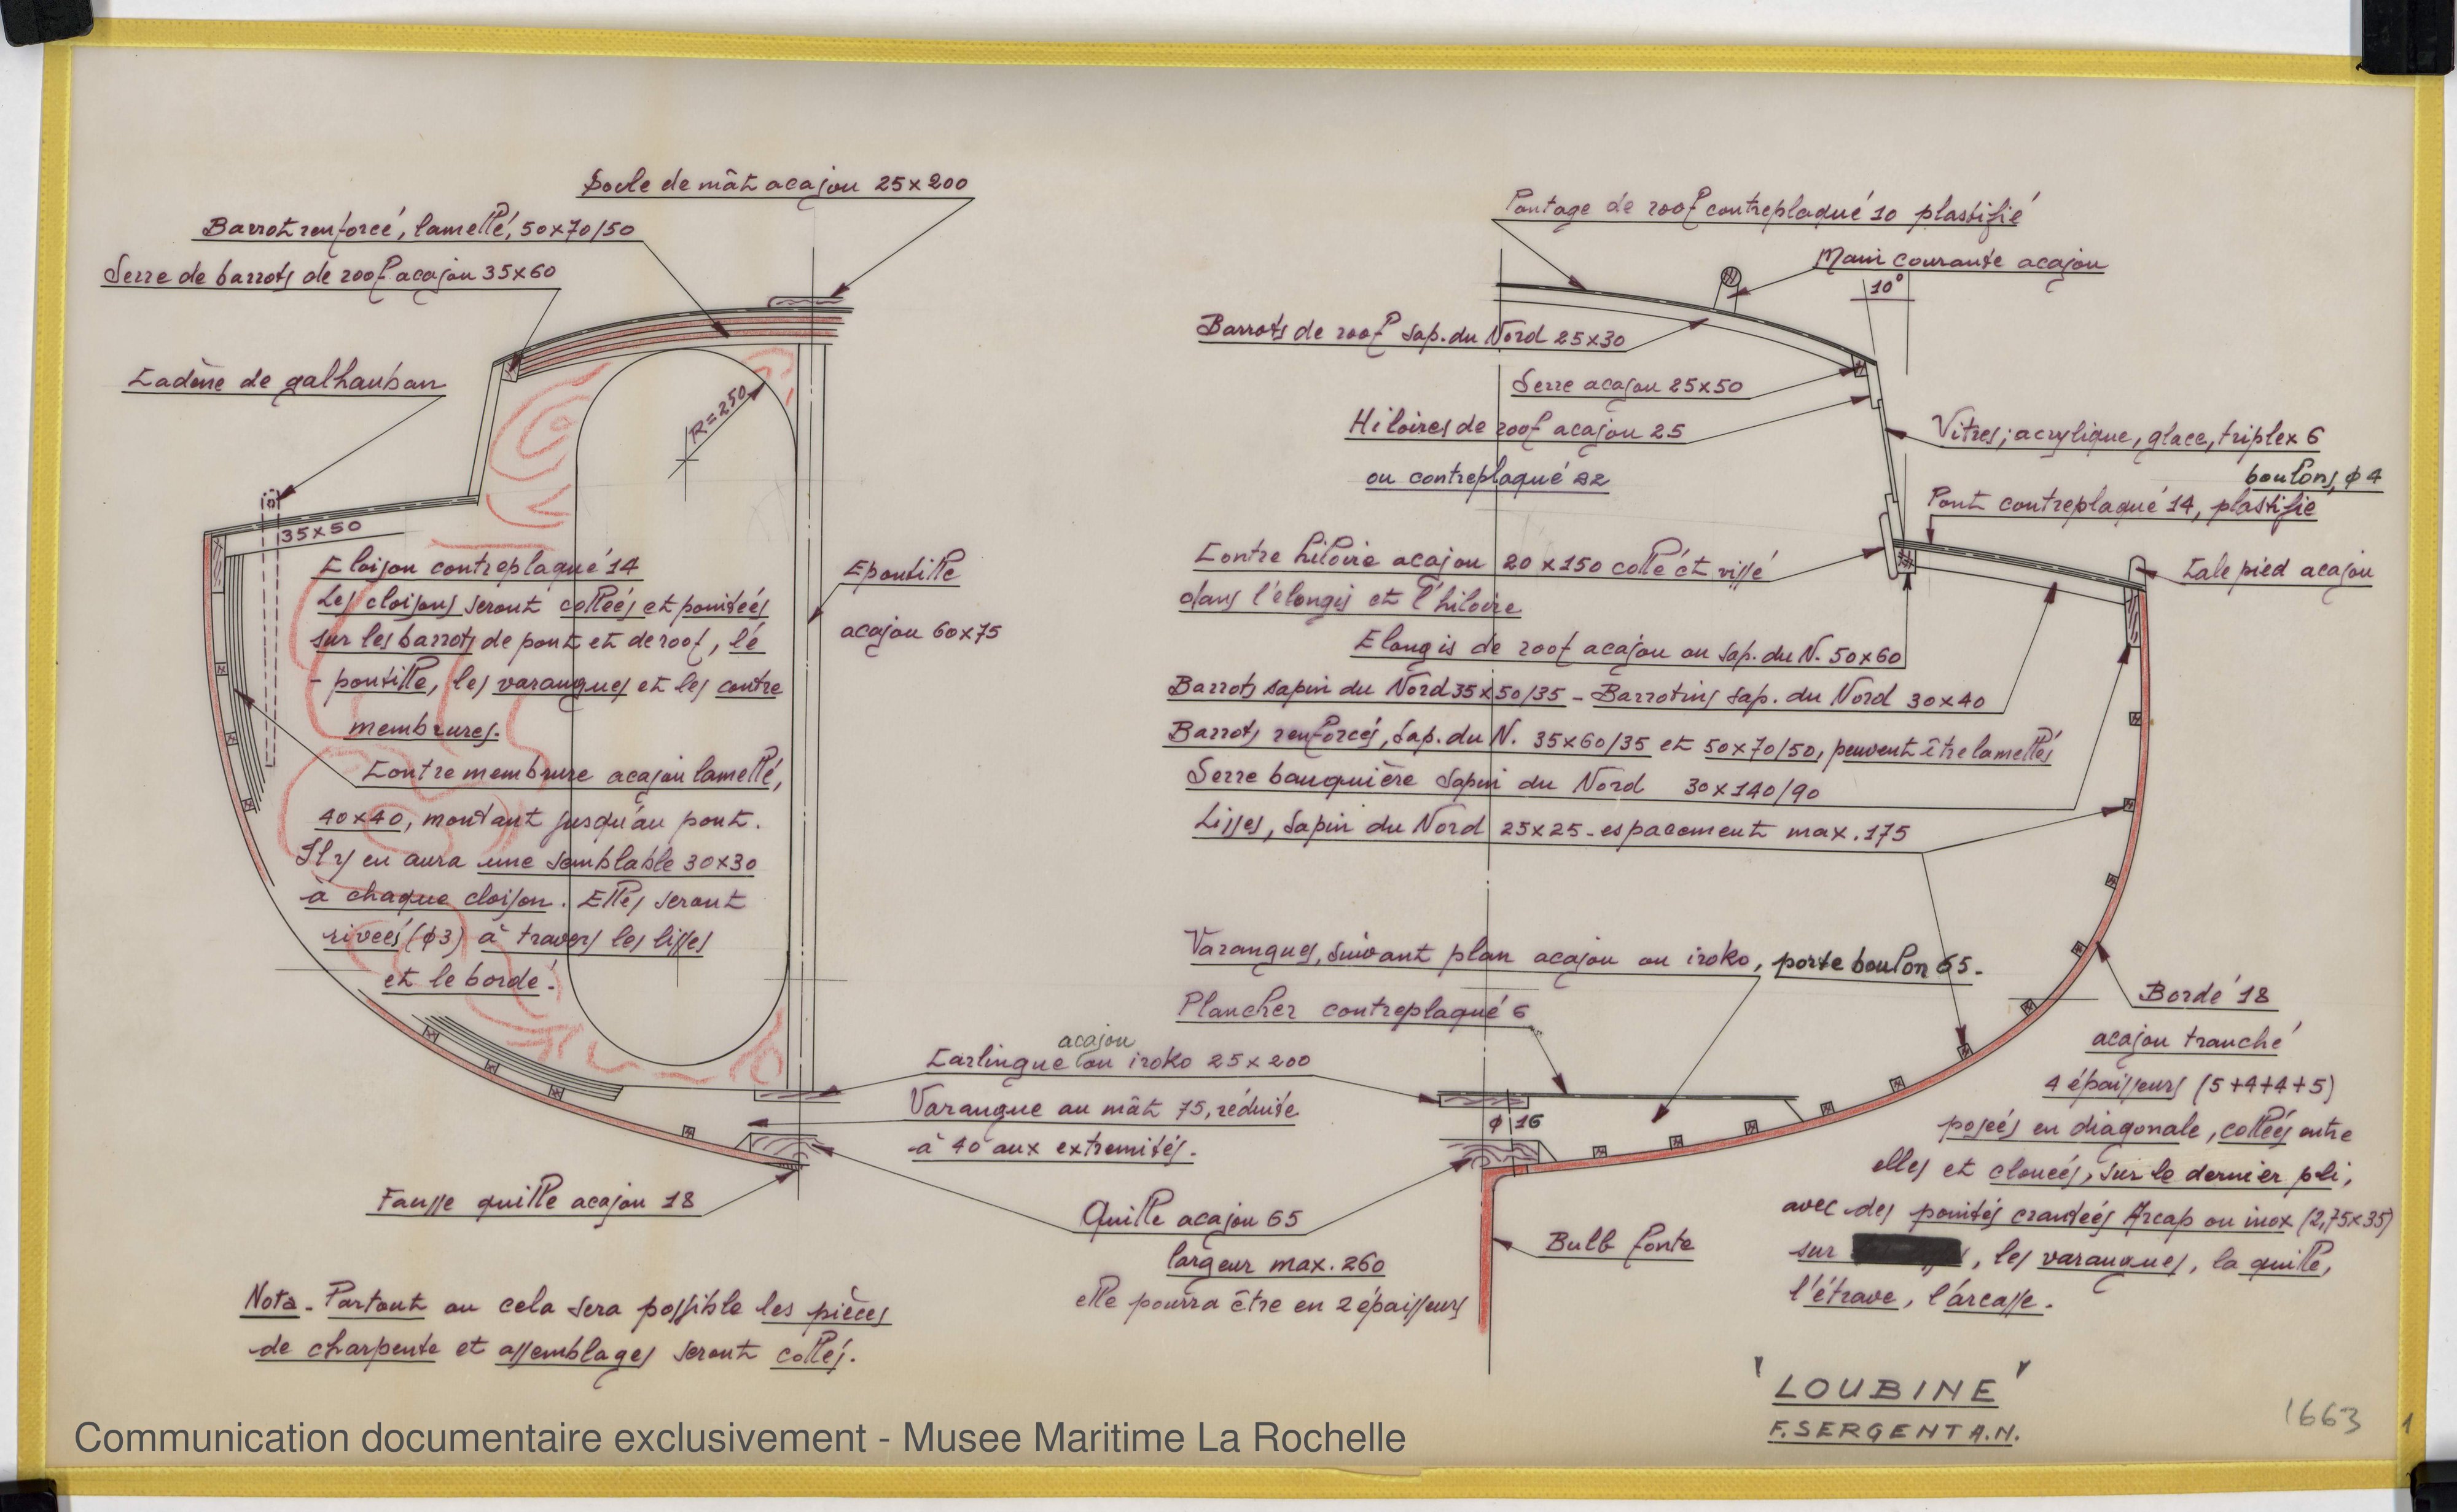 Socle de mât acajou 25x200
Barrot renforcé, lamellé, 50x70/50
Serre de barrots de roof acajou 35x60
Cadène de galhauban
R=250
35x50
Cloison contreplaqué 14
Les cloisons seront collées et pointées
sur les barrots de pont et de roof, l'é
- pontille, les varangues et les contre
membrures.
Contre membrure acajou lamellé,
40x40, montant jusqu'au pont.
Il y en aura une semblable 30x30
à chaque cloison. Elles seront
rivées (φ3) à travers les lisses
et le bordé.
Epontille
acajou 60x75
acajou
Carlingue ou iroko 25x200
Varangue au mât 75, réduite
à 40 aux extremités.
Fausse quille acajou 18
Quille acajou 65
largeur max. 260
elle pourra être en 2 épaisseurs
Nota - Partout ou cela sera possible les pièces
de charpente et assemblages seront collés.
Pontage de roof contreplaqué 10 plastifié
Main courante acajou
10°
Barrots de roof sap. du Nord 25x30
Serre acajou 25x50
Hiloires de roof acajou 25
ou contreplaqué 22
Vitres; acrylique, glace, triplex 6
boulons, φ 4
Pont contreplaqué 14, plastifie
Contre hiloire acajou 20x150 collé et vissé
dans l'élongis et l'hiloire
Cale pied acajou
Elongis de roof acajou ou sap. du N. 50x60
Barrots sapin du Nord 35x50/35 - Barrotins sap. du Nord 30x40
Barrots renforcés, sap. du N. 35x60/35 et 50x70/50, peuvent être lamellés
Serre bauquière sapin du Nord 30x140/90
Lisses, sapin du Nord 25x25 - espacement max. 175
Varangues, suivant plan acajou ou iroko, porte boulon 65.
Plancher contreplaqué 6
φ 16
Bordé 18
acajou tranché
4 épaisseurs (5+4+4+5)
posées en diagonale, collées entre
elles et clouées, sur le dernier pli,
avec des pointes crantées Arcap ou inox (2,75x35)
sur , les varangues, la quille,
l'étrave, l'arcasse.
Bulb fonte
"LOUBINE"
F. SERGENT A.N.
1663
1
Communication documentaire exclusivement - Musee Maritime La Rochelle